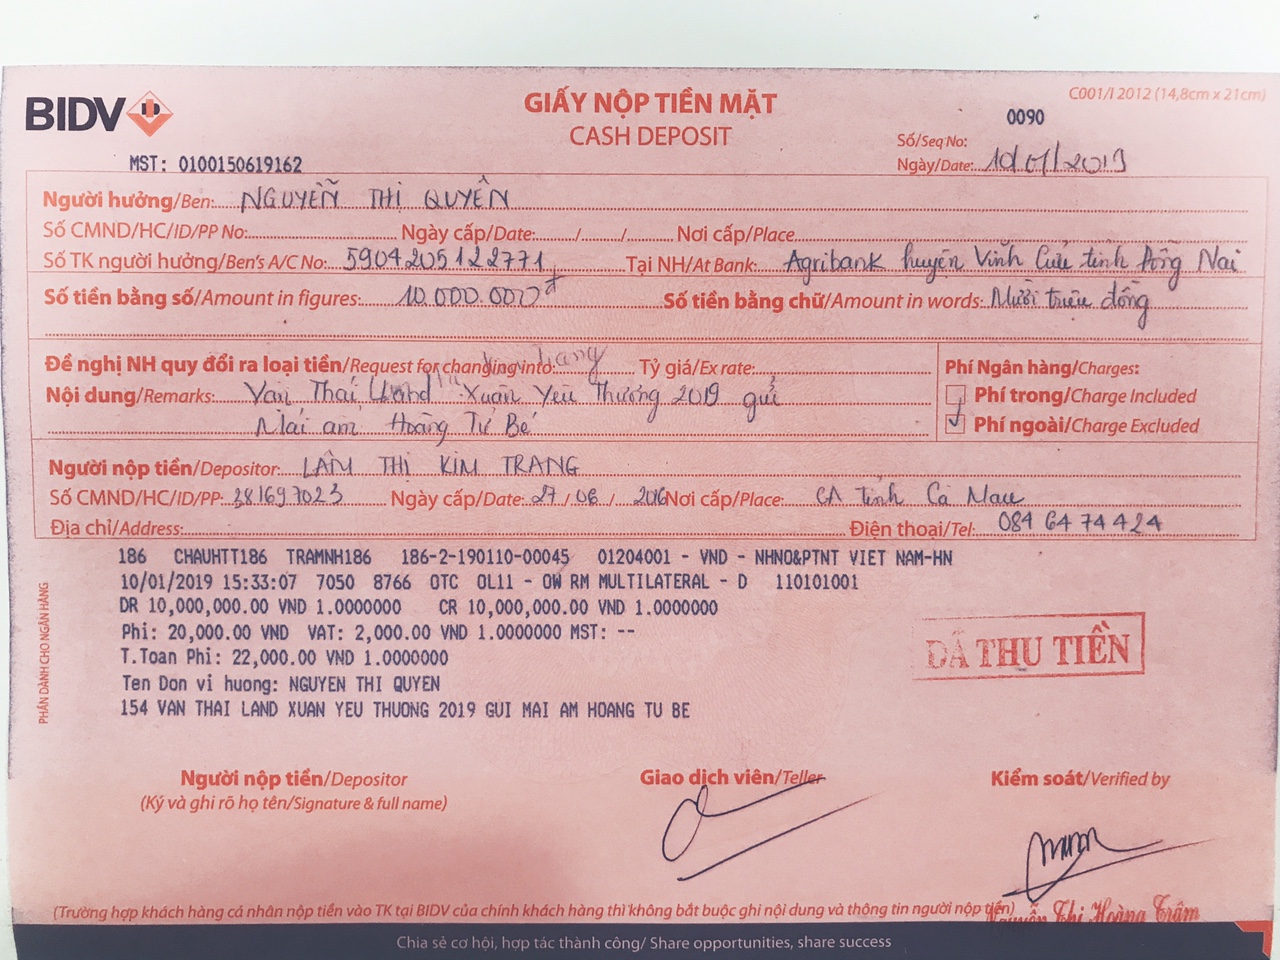 BIDV
GIẤY NỘP TIỀN MẶT
CASH DEPOSIT
C001/I 2012 (14,8cm x 21cm)
0090
Số/Seq No:
MST: 0100150619162
Ngày/Date: 10/01/2019
Người hưởng/Ben: NGUYỄN THỊ QUYÊN
Số CMND/HC/ID/PP No: Ngày cấp/Date: / / Nơi cấp/Place
Số TK người hưởng/Ben's A/C No: 5904205122771 Tại NH/At Bank: Agribank huyện Vĩnh Cửu tỉnh Đồng Nai
Số tiền bằng số/Amount in figures: 10.000.000đ Số tiền bằng chữ/Amount in words: Mười triệu đồng
Đề nghị NH quy đổi ra loại tiền/Request for changing into: Tỷ giá/Ex rate: Phí Ngân hàng/Charges:
Nội dung/Remarks: Vạn Thái Land Xuân Yêu Thương 2019 gửi
Phí trong/Charge Included
Mái ấm Hoàng Tử Bé
Phí ngoài/Charge Excluded
Người nộp tiền/Depositor: LÂM THỊ KIM TRANG
Số CMND/HC/ID/PP: 381697023 Ngày cấp/Date: 27/06/2016 Nơi cấp/Place: CA tỉnh Cà Mau
Địa chỉ/Address: Điện thoại/Tel: 084 64 74 424
186 CHAUHTT186 TRAMNH186 186-2-190110-00045 01204001 - VND - NHNO&PTNT VIET NAM-HN
10/01/2019 15:33:07 7050 8766 OTC OL11 - OW RM MULTILATERAL - D 110101001
DR 10,000,000.00 VND 1.0000000 CR 10,000,000.00 VND 1.0000000
Phi: 20,000.00 VND VAT: 2,000.00 VND 1.0000000 MST: --
T.Toan Phi: 22,000.00 VND 1.0000000
Ten Don vi huong: NGUYEN THI QUYEN
154 VAN THAI LAND XUAN YEU THUONG 2019 GUI MAI AM HOANG TU BE
ĐÃ THU TIỀN
PHẦN DÀNH CHO NGÂN HÀNG
Người nộp tiền/Depositor Giao dịch viên/Teller Kiểm soát/Verified by
(Ký và ghi rõ họ tên/Signature & full name)
(Trường hợp khách hàng cá nhân nộp tiền vào TK tại BIDV của chính khách hàng thì không bắt buộc ghi nội dung và thông tin người nộp tiền)
Nguyễn Thị Hoàng Trâm
Chia sẻ cơ hội, hợp tác thành công/ Share opportunities, share success